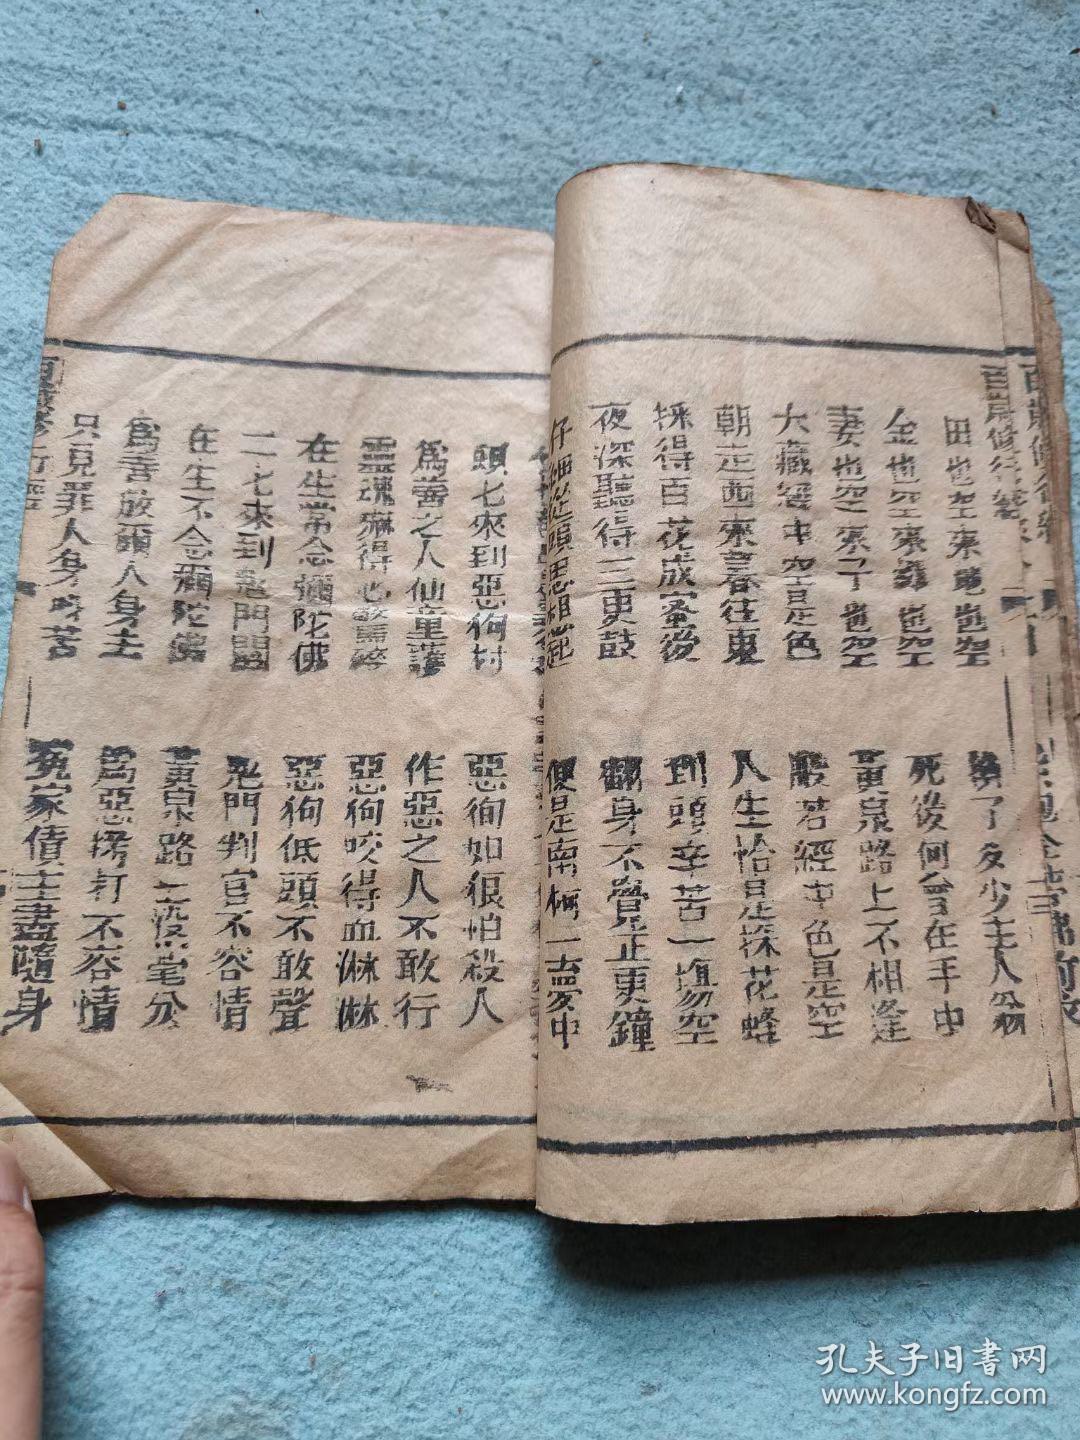 田也空來地也空
換了多少主人翁
金也空來銀也空
死後何曾在手中
妻也空來子也空
黃泉路上不相逢
大藏經中空是色
般若經中色是空
朝走西來暮往東
人生恰是採花蜂
採得百花成蜜後
到頭辛苦一塲空
夜深聽得三更鼓
翻身不覺五更鐘
仔細從頭思想起
便是南柯一夢中
頭七來到惡狗村
惡狗如狼怕殺人
爲善之人仙童護
作惡之人不敢行
靈魂嚇得
惡狗咬得血淋淋
在生常念彌陀佛
惡狗低頭不敢聲
二七來到鬼門關
鬼門判官不容情
在生不念彌陀佛
黃泉路上沒毫分
爲善放頭人身主
爲惡拷打不容情
只見罪人身受苦
冤家債主盡隨身
百歲修行經
孔夫子旧書网
www.kongfz.com